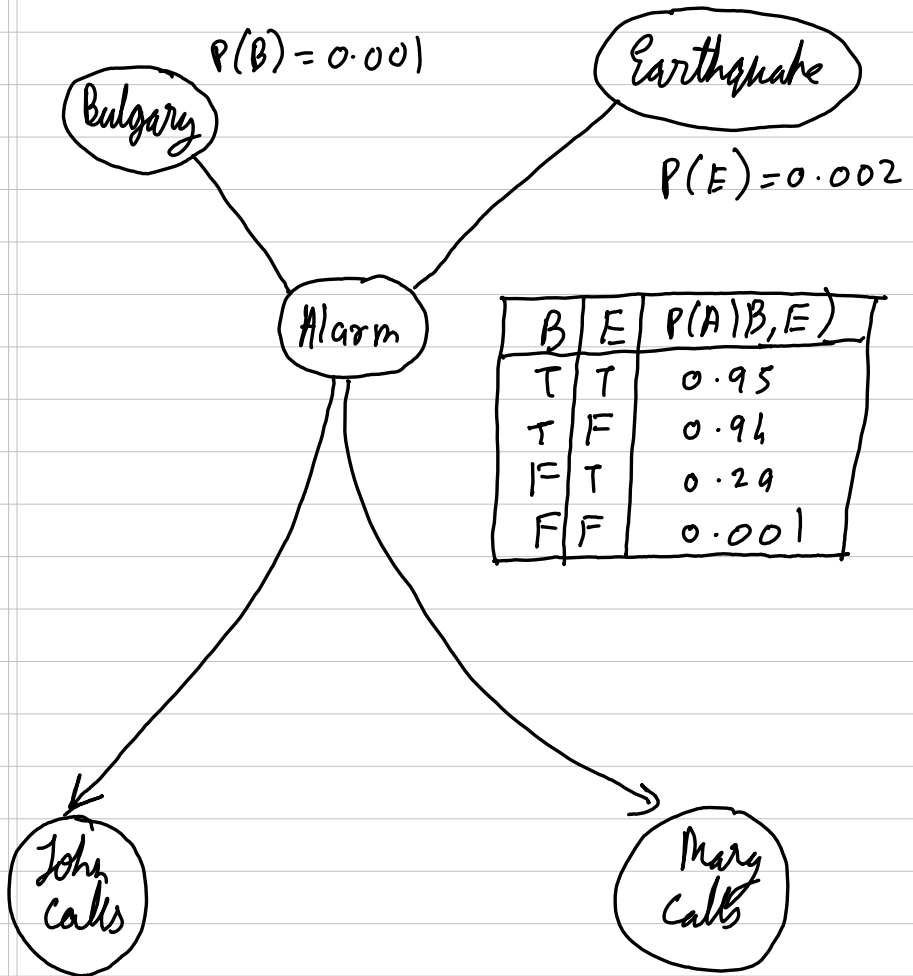 P(B) = 0.001
Earthquake
Bulgary
P(E) = 0.002
Alarm
B E P(A|B,E)
T T 0.95
T F 0.94
F T 0.29
F F 0.001
John
Calls
Mary
Calls